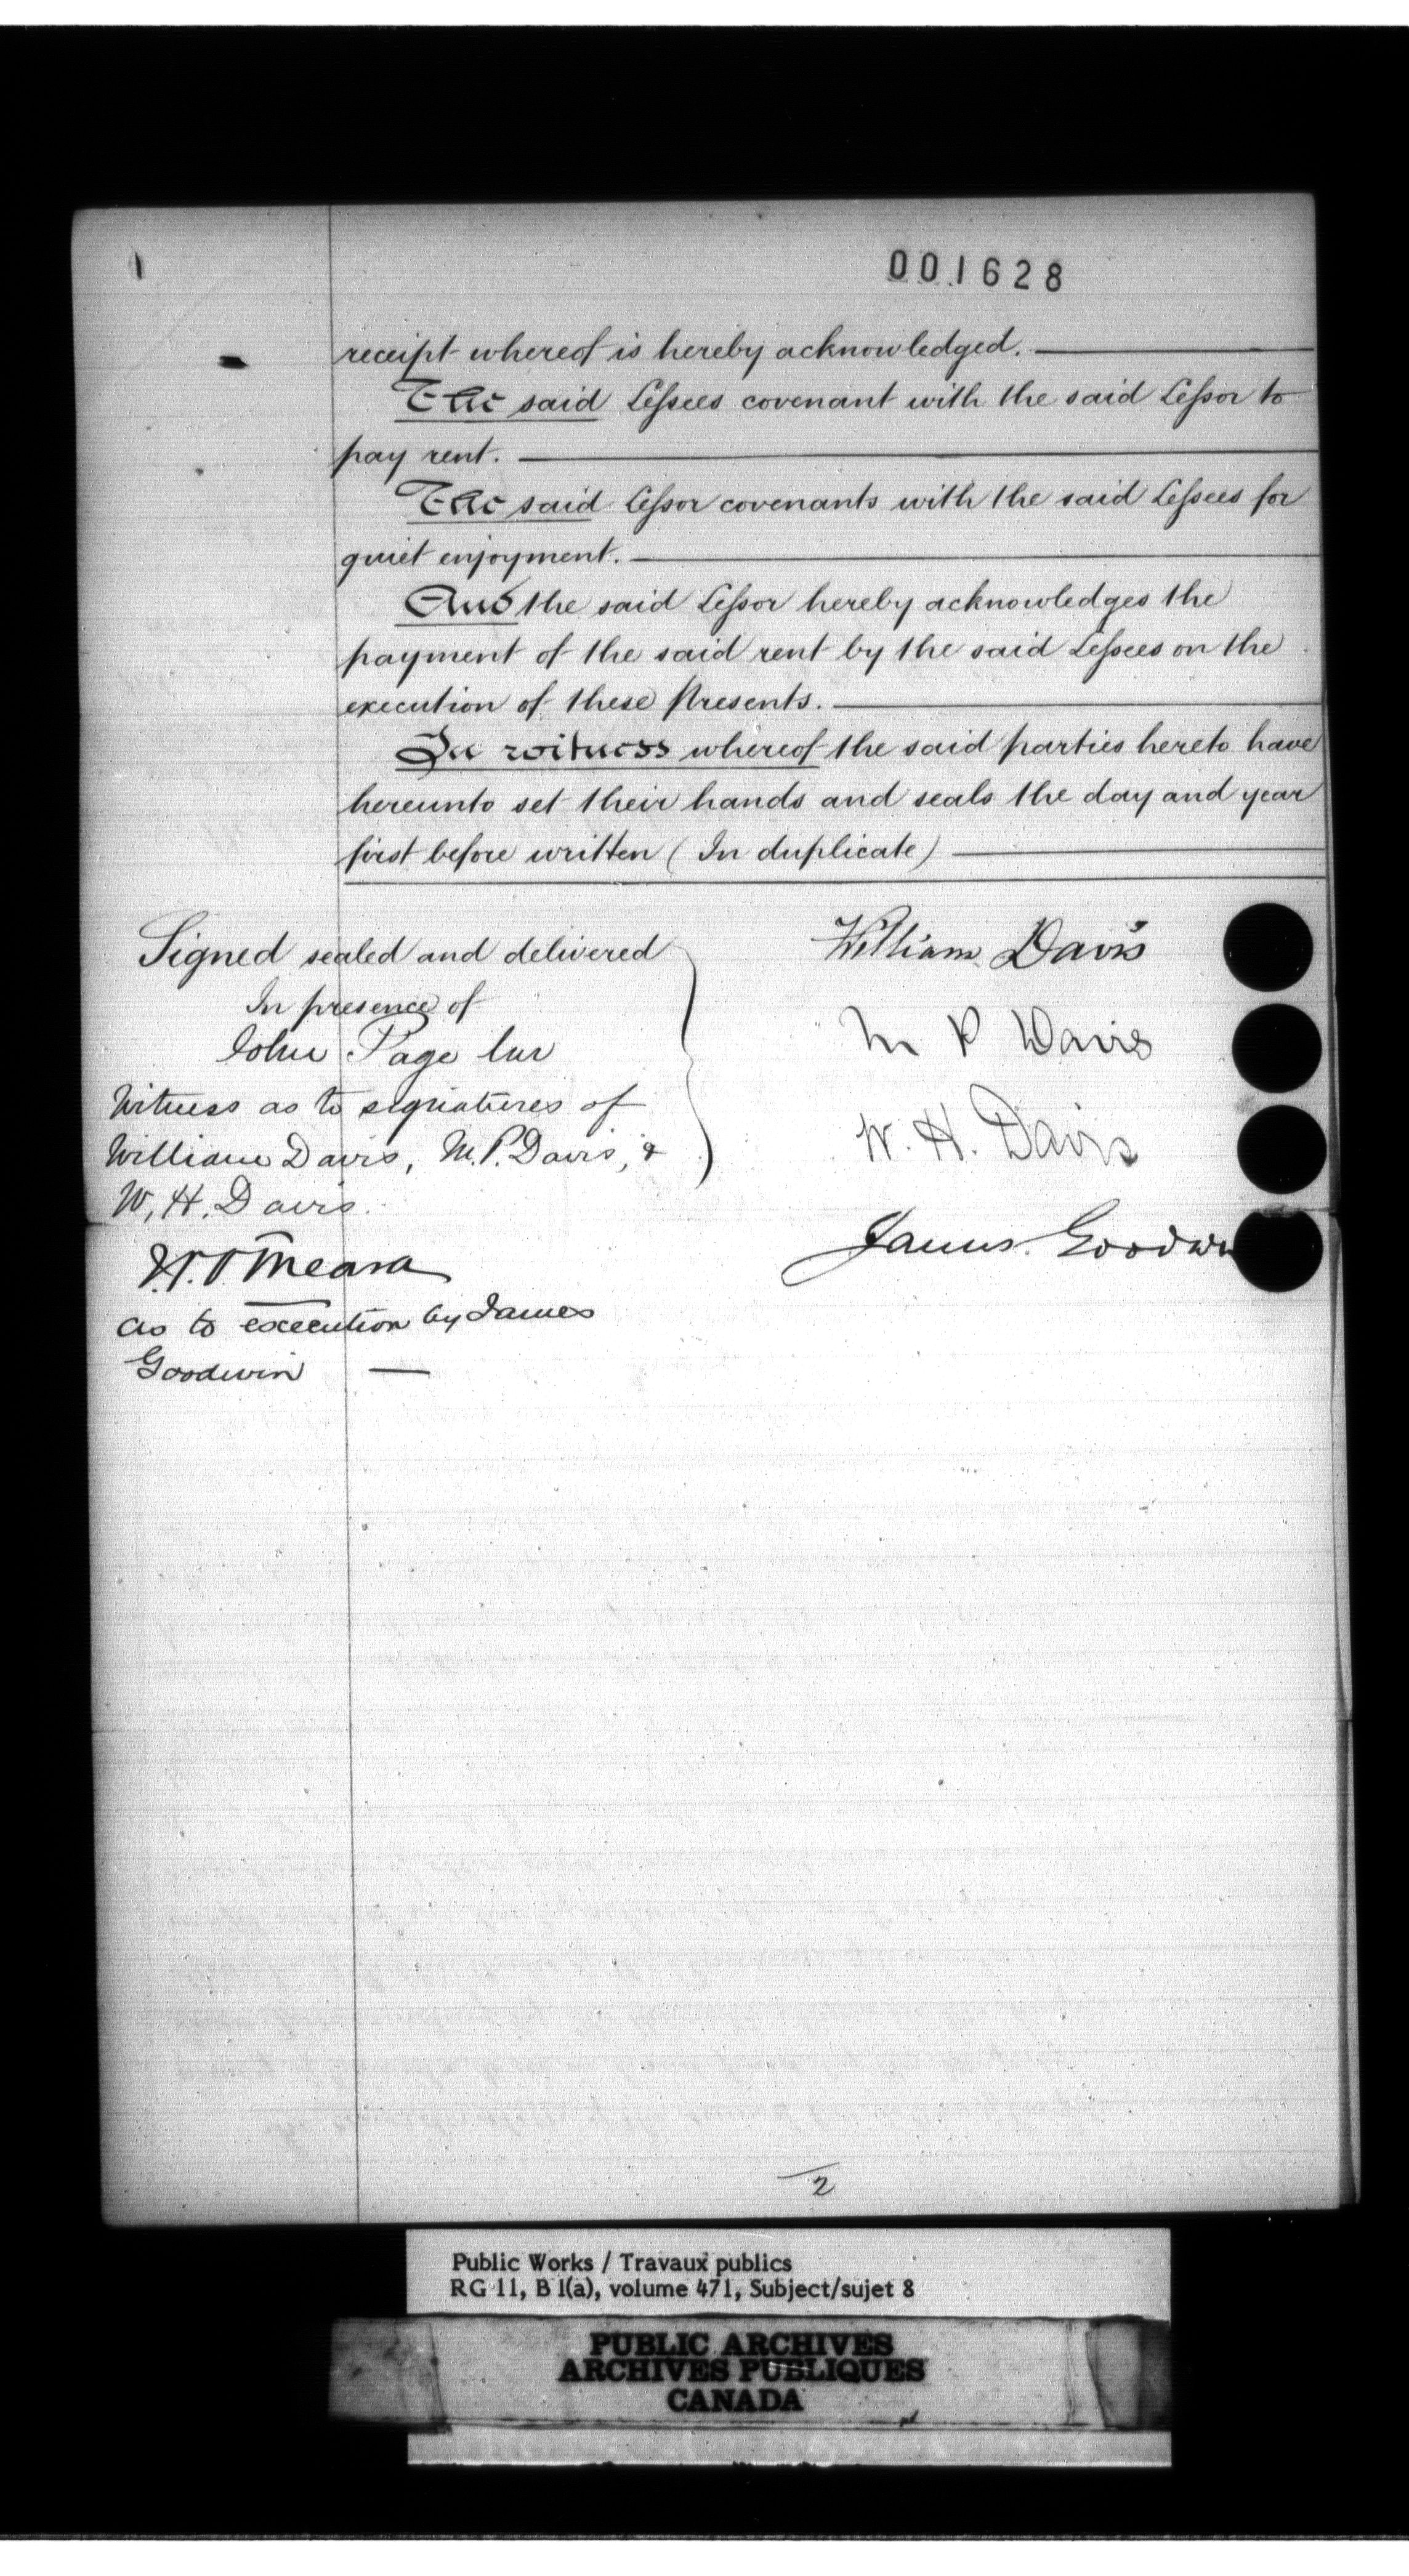 001628
receipt whereof is hereby acknowledged.
The said Lessees covenant with the said Lessor to
pay rent.
The said Lessor covenants with the said Lessees for
quiet enjoyment.
And the said Lessor hereby acknowledges the
payment of the said rent by the said Lessees on the
execution of these Presents.
In witness whereof the said parties hereto have
hereunto set their hands and seals the day and year
first before written (In duplicate)
Signed sealed and delivered
In presence of
John Page
Witness as to signatures of
William Davis, M.P. Davis, &
W. H. Davis.
O'Meara
as to execution by James
Goodwin —
William Davis
M P Davis
W. H. Davis
James Goodwin
2
Public Works / Travaux publics
RG 11, B 1(a), volume 471, Subject/sujet 8
PUBLIC ARCHIVES
ARCHIVES PUBLIQUES
CANADA